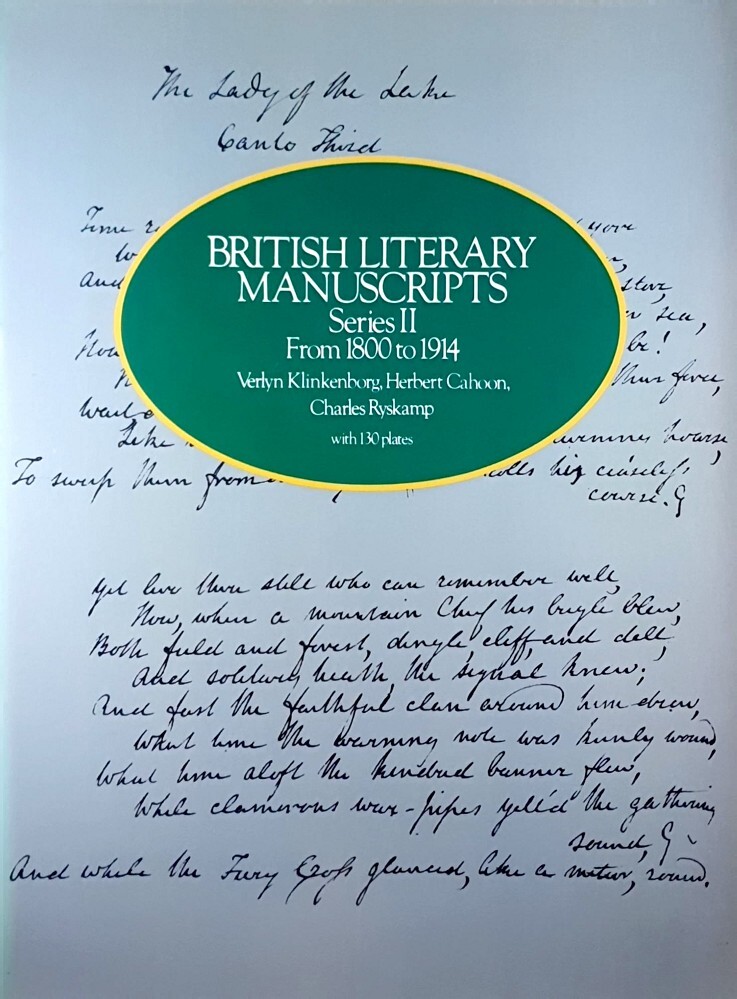 The Lady of the Lake
Canto Third
Time yore
And store,
BRITISH LITERARY
MANUSCRIPTS
Series II
From 1800 to 1914
Verlyn Klinkenborg, Herbert Cahoon,
Charles Ryskamp
with 130 plates
sea,
How be!
thus force,
Like hoarse,
To sweep them from rolls his ceaseless
course.
Yet live there still who can remember well,
How, when a mountain Chief his bugle blew,
Both field and forest, dingle, cliff, and dell,
And solitary heath, the signal knew;
And fast the faithful clan around him drew,
What time the warning note was keenly wound,
What time aloft the kindred banner flew,
While clamorous war-pipes yell'd the gathering
sound,
And while the Fiery Cross glanced, like a meteor, round.